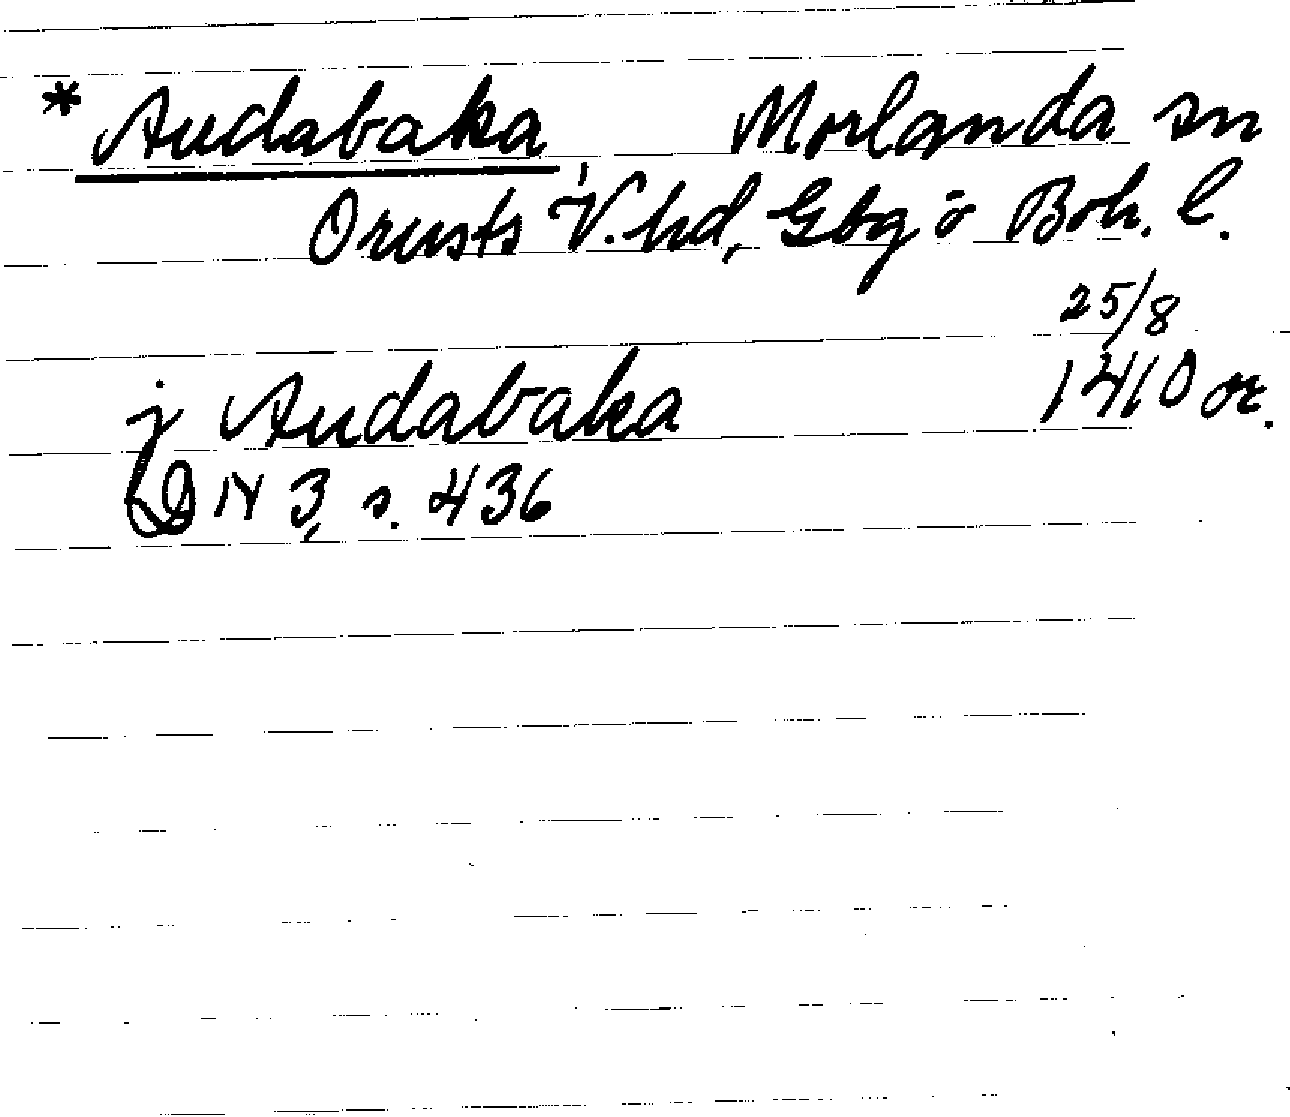 * Audabaka Morlanda sn
Orusts V. hd, Gbg o Boh. l.
25/8
j Audabaka 1410 or.
DN 3, s. 436